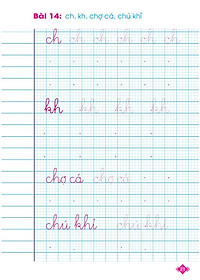 Bài 14: ch, kh, chợ cá, chú khỉ
ch ch ch ch ch ch
kh kh kh kh kh
chợ cá chợ cá
chú khỉ chú khỉ